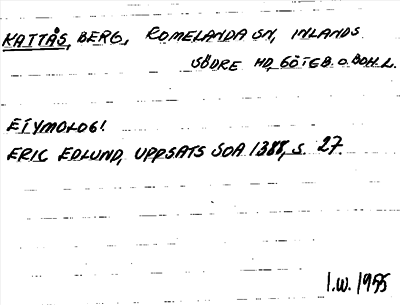 KATTÅS, BERG, ROMELANDA SN, INLANDS
SÖDRE HD, GÖTEB. O. BOH. L.
ETYMOLOGI
ERIC EDLUND, UPPSATS SOA 1388, S. 27.
I.W. 1955